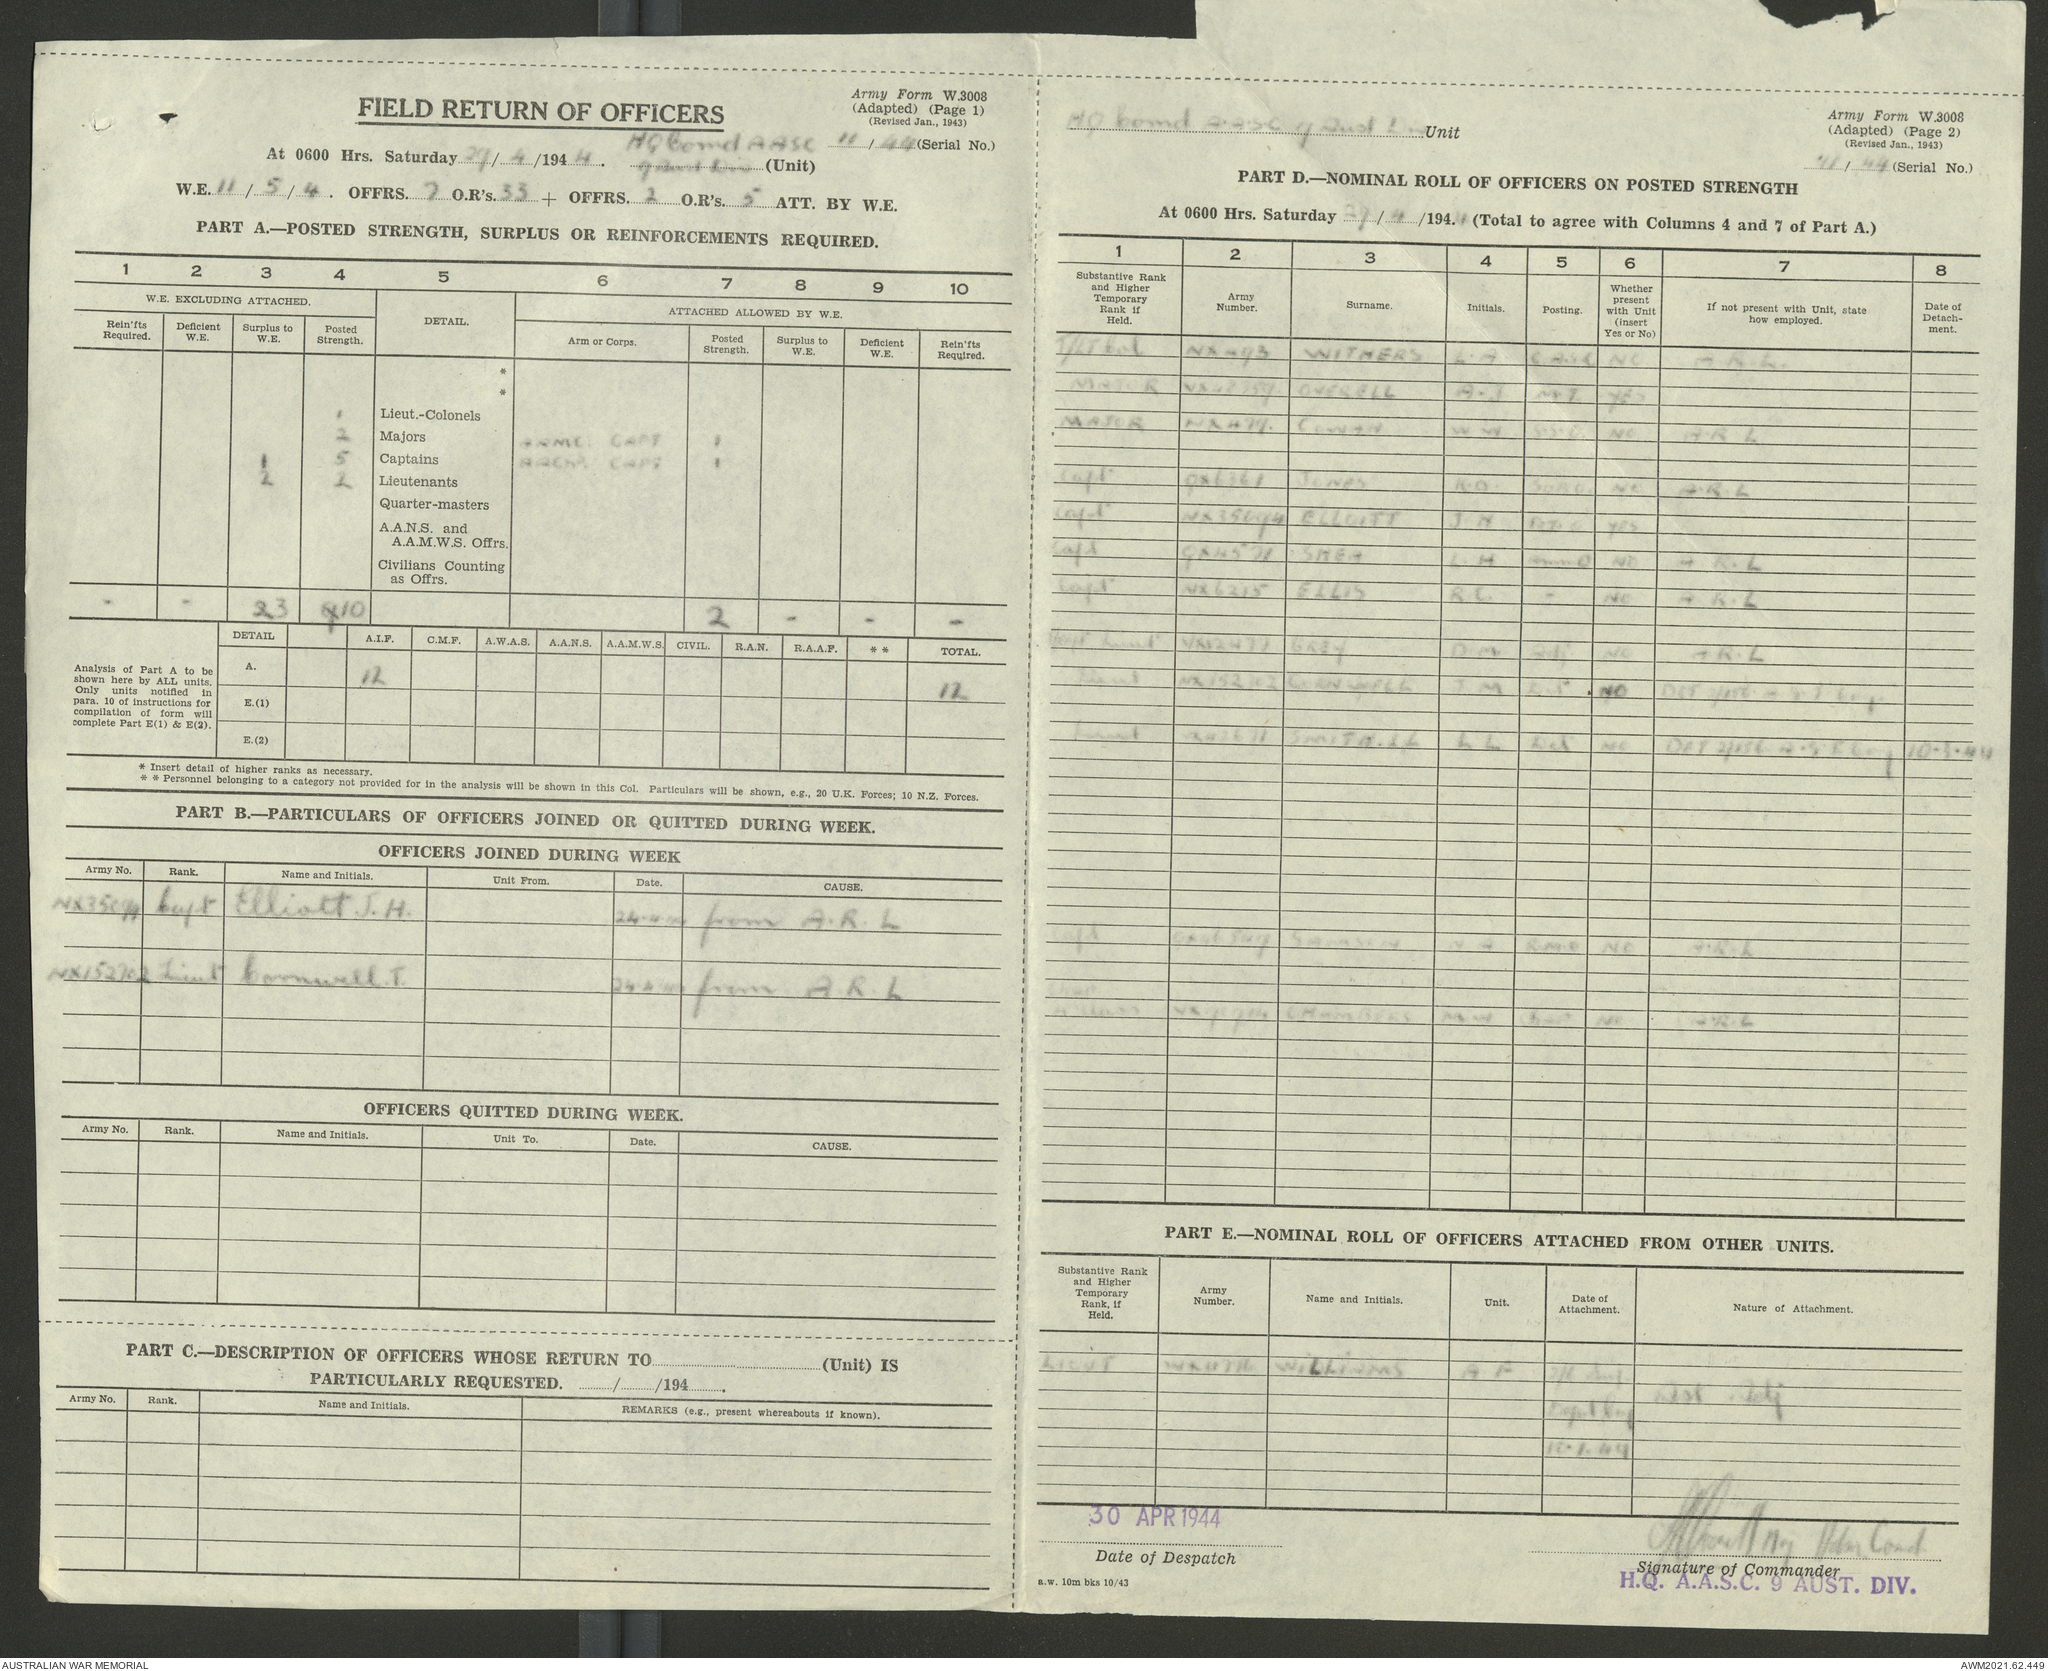 FIELD RETURN OF OFFICERS
Army Form W.3008
(Adapted) (Page 1)
(Revised Jan., 1943)
At 0600 Hrs. Saturday 29/4/1944. HQ Comd AASC 9 Aust Div (Unit) 11/44 (Serial No.)
W.E. 11/5/4. OFFRS. 7 O.R's. 33 + OFFRS. 2 O.R's. 5 ATT. BY W.E.
PART A.—POSTED STRENGTH, SURPLUS OR REINFORCEMENTS REQUIRED.
1 2 3 4 5 6 7 8 9 10
W.E. EXCLUDING ATTACHED. DETAIL. ATTACHED ALLOWED BY W.E.
Rein'fts Required. Deficient W.E. Surplus to W.E. Posted Strength. Arm or Corps. Posted Strength. Surplus to W.E. Deficient W.E. Rein'fts Required.
*
*
1 Lieut.-Colonels
2 Majors AAMC. CAPT 1
1 5 Captains CAPT 1
2 2 Lieutenants
Quarter-masters
A.A.N.S. and
A.A.M.W.S. Offrs.
Civilians Counting
as Offrs.
- - 3 10 2 - - -
Analysis of Part A to be shown here by ALL units. Only units notified in para. 10 of instructions for compilation of form will complete Part E(1) & E(2).
DETAIL A.I.F. C.M.F. A.W.A.S. A.A.N.S. A.A.M.W.S. CIVIL. R.A.N. R.A.A.F. * * TOTAL.
A. 12 12
E.(1)
E.(2)
* Insert detail of higher ranks as necessary.
* * Personnel belonging to a category not provided for in the analysis will be shown in this Col. Particulars will be shown, e.g., 20 U.K. Forces; 10 N.Z. Forces.
PART B.—PARTICULARS OF OFFICERS JOINED OR QUITTED DURING WEEK.
OFFICERS JOINED DURING WEEK
Army No. Rank. Name and Initials. Unit From. Date. CAUSE.
NX35094 Capt Elliott J. H. 24.4.44 from A.R.L
NX152702 Lieut Cornwell. J. 24.4.44 from A.R.L
OFFICERS QUITTED DURING WEEK.
Army No. Rank. Name and Initials. Unit To. Date. CAUSE.
PART C.—DESCRIPTION OF OFFICERS WHOSE RETURN TO (Unit) IS
PARTICULARLY REQUESTED. / /194 .
Army No. Rank. Name and Initials. REMARKS (e.g., present whereabouts if known).
HQ Comd AASC 9 Aust Div Unit
Army Form W.3008
(Adapted) (Page 2)
(Revised Jan., 1943)
11/44 (Serial No.)
PART D.—NOMINAL ROLL OF OFFICERS ON POSTED STRENGTH
At 0600 Hrs. Saturday 29/4/1944 (Total to agree with Columns 4 and 7 of Part A.)
1 2 3 4 5 6 7 8
Substantive Rank and Higher Temporary Rank if Held. Army Number. Surname. Initials. Posting. Whether present with Unit (insert Yes or No) If not present with Unit, state how employed. Date of Detachment.
T/LT Col NX493 WITHERS L.A C.A.S.C NO A.R.L.
MAJOR OVERELL A. M.T YES
MAJOR NX479 COWAN W NO A.R.L
Capt QX6361 JONES R.O. NO A.R.L
Capt NX35094 ELLIOTT J.H YES
Capt QX4571 SHEA L.H NO A.R.L
Capt NX6215 ELLIS R.C. - NO A.R.L
Lieut GREY D.M Adj NO A.R.L
Lieut NX152702 CORNWELL J.M NO
Lieut SMITH L.L NO 10.3.44
Capt SAMSON R.M.O NO A.R.L
CHAMBERS NO A.R.L
PART E.—NOMINAL ROLL OF OFFICERS ATTACHED FROM OTHER UNITS.
Substantive Rank and Higher Temporary Rank, if Held. Army Number. Name and Initials. Unit. Date of Attachment. Nature of Attachment.
LIEUT WILLIAMS A F Asst Adj
Date of Despatch
30 APR 1944
Signature of Commander
H.Q. A.A.S.C. 9 AUST. DIV.
a.w. 10m bks 10/43
AUSTRALIAN WAR MEMORIAL
AWM2021.62.449